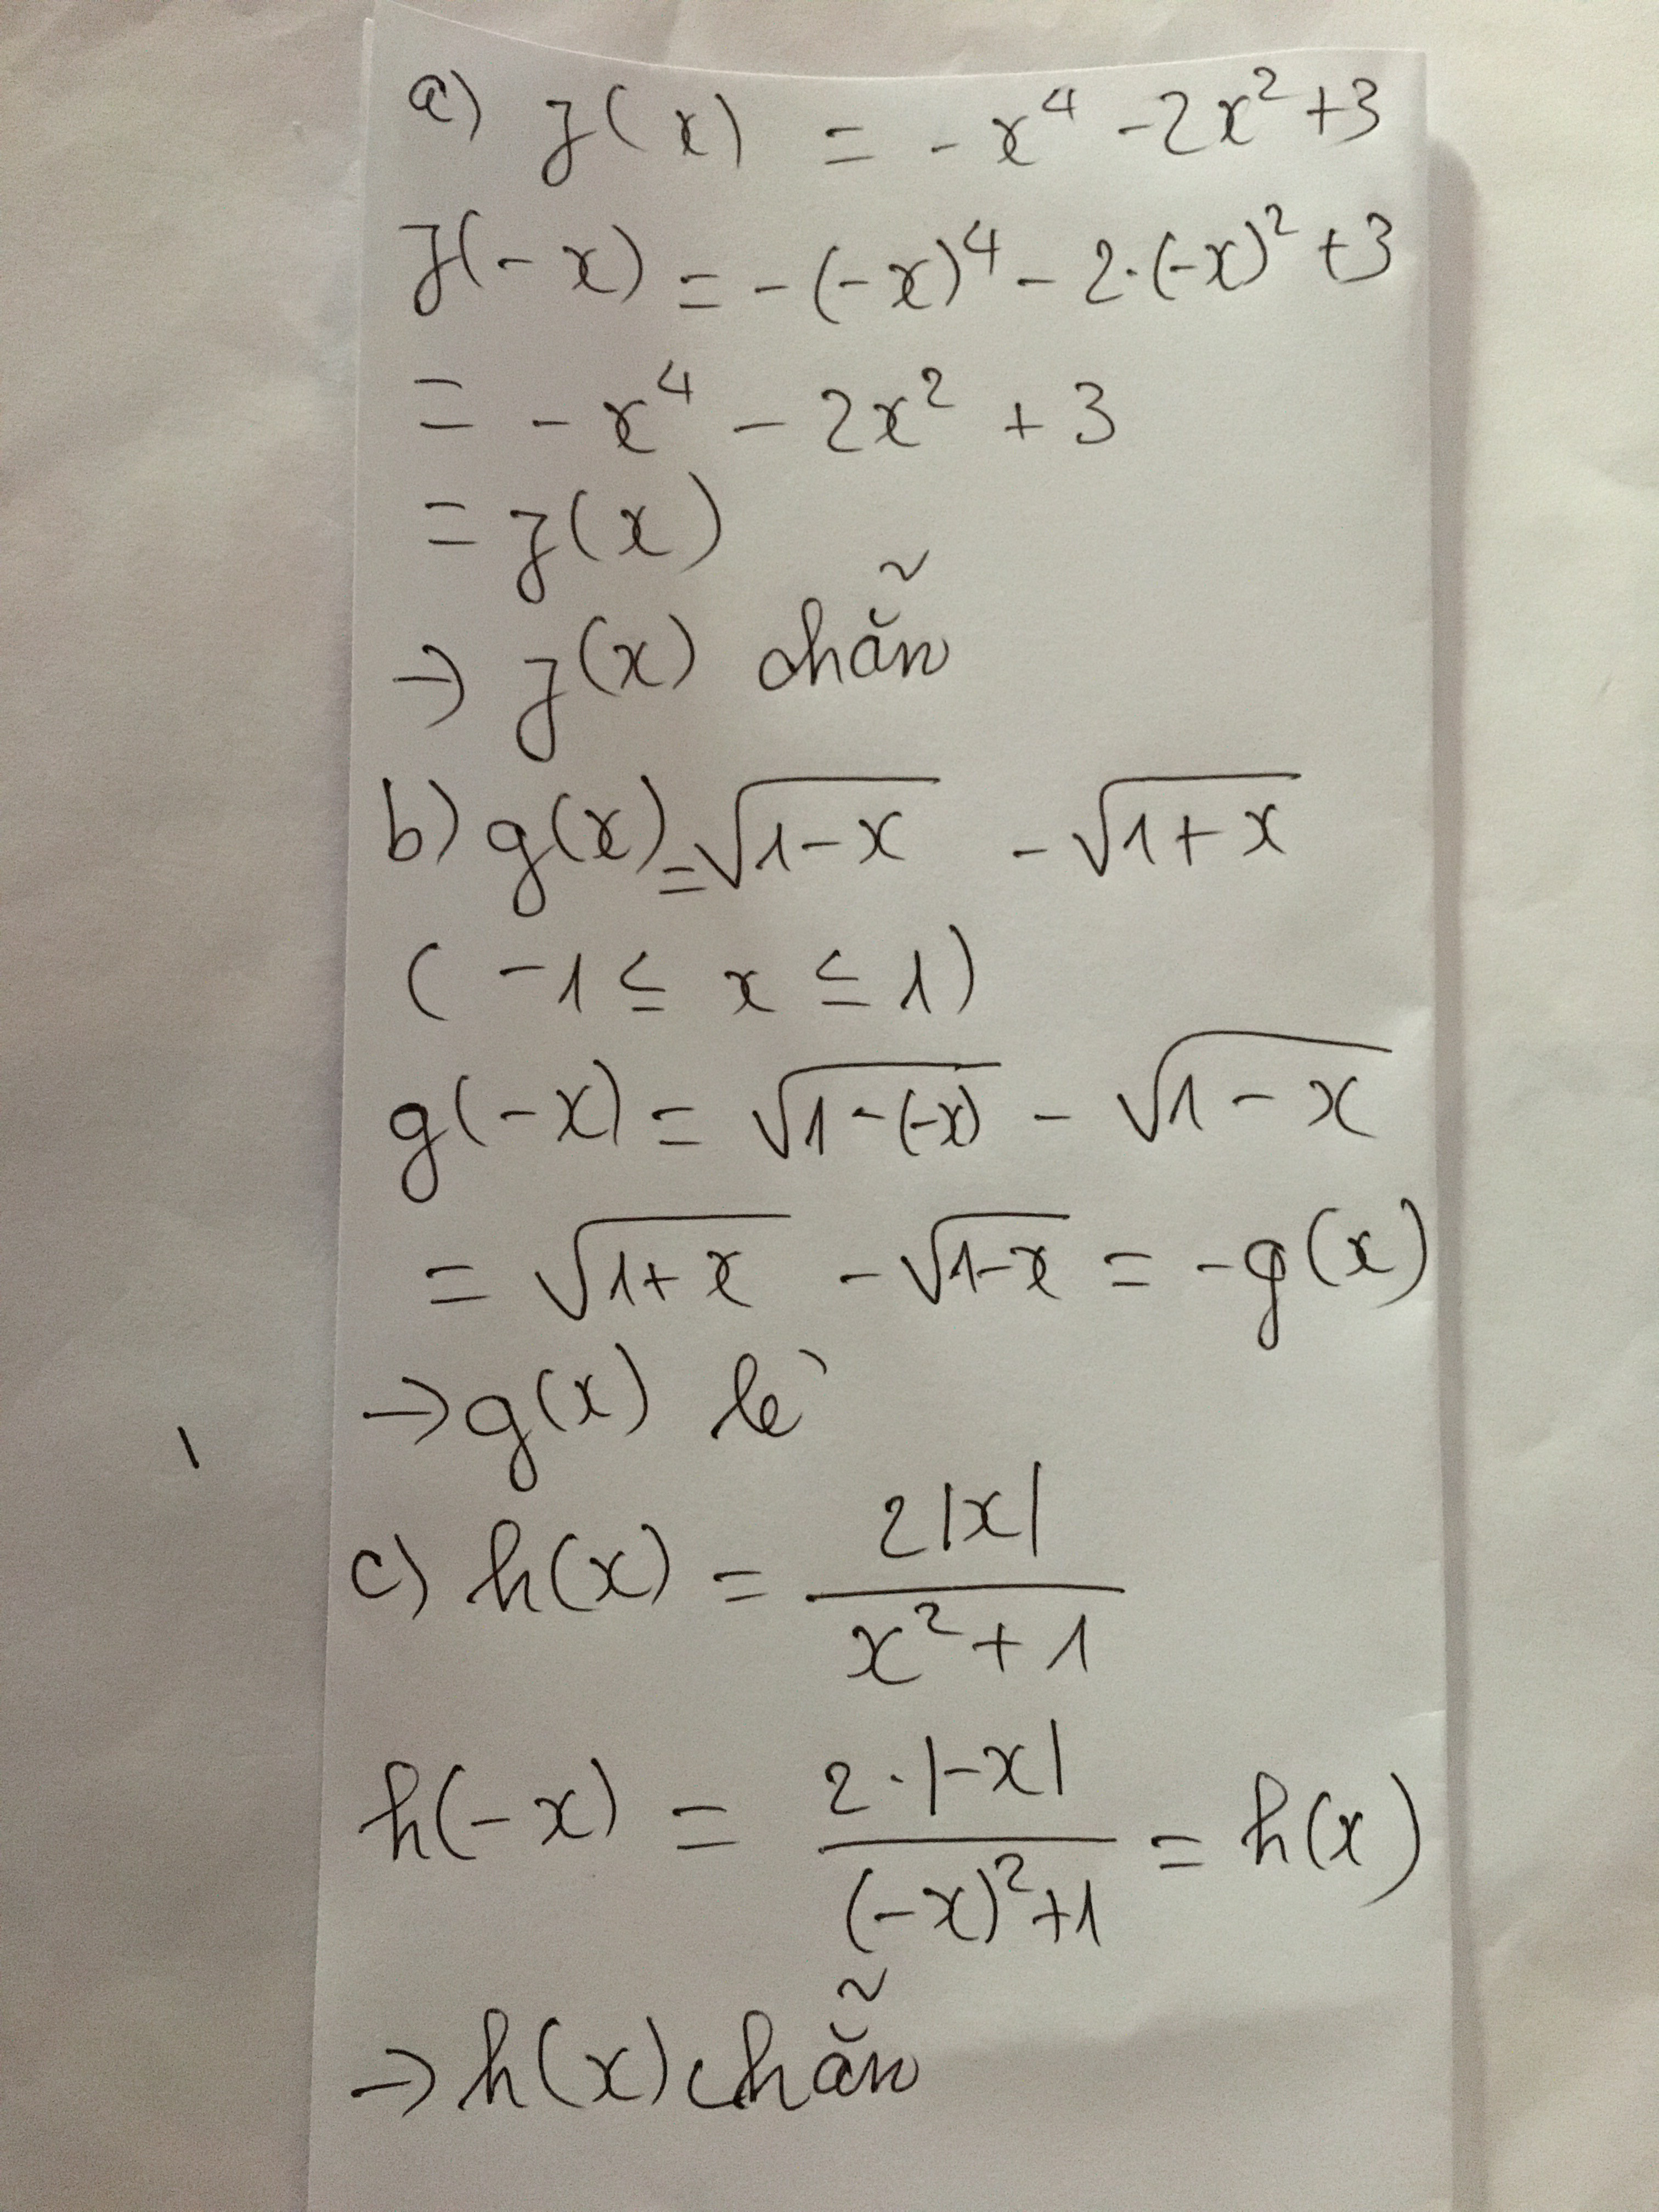 a) f(x) = -x⁴ -2x² +3
f(-x) = -(-x)⁴ - 2.(-x)² +3
= -x⁴ - 2x² + 3
= f(x)
→ f(x) chẵn
b) g(x) = √(1-x) - √(1+x)
( -1 ≤ x ≤ 1)
g(-x) = √(1-(-x)) - √(1-x)
= √(1+x) - √(1-x) = -g(x)
→ g(x) lẻ
c) h(x) = 2|x| / (x²+1)
h(-x) = 2.|-x| / ((-x)²+1) = h(x)
→ h(x) chẵn